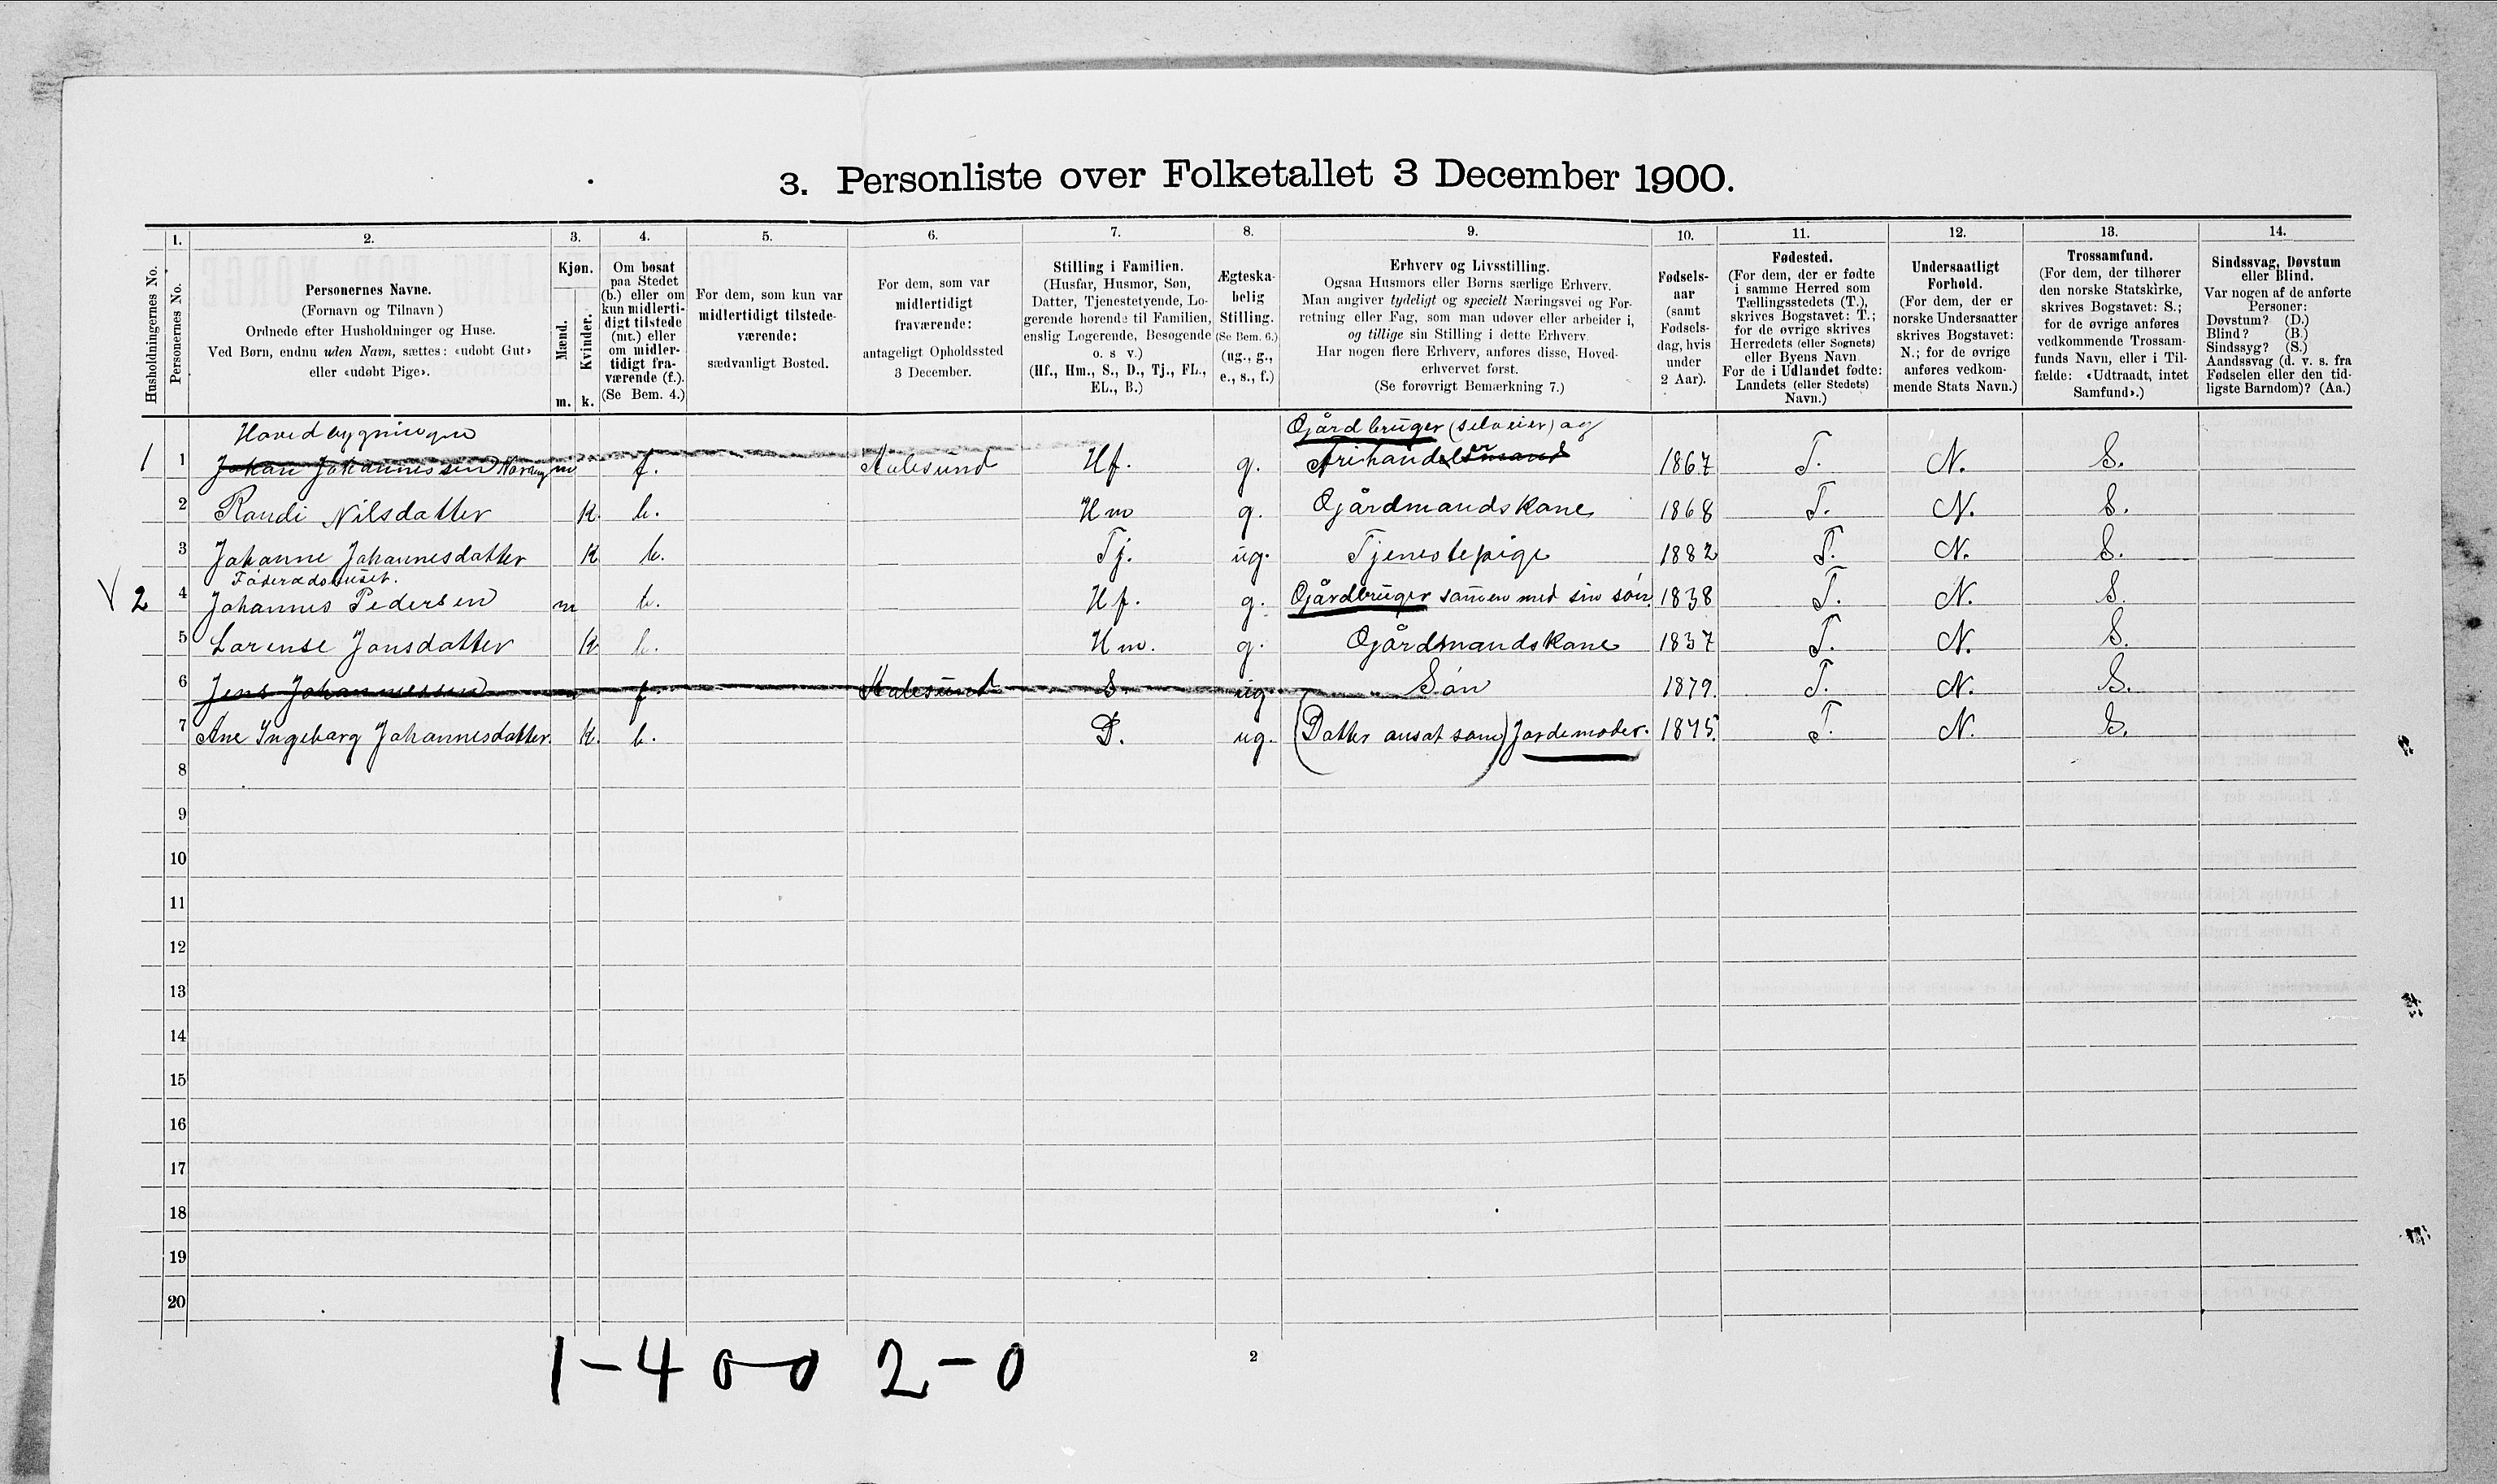 3. Personliste over Folketallet 3 December 1900.
Husholdningernes No.
1.
Personernes No.
2.
Personernes Navne.
(Fornavn og Tilnavn)
Ordnede efter Husholdninger og Huse.
Ved Børn, endnu uden Navn, sættes: «udøbt Gut»
eller «udøbt Pige».
3.
Kjøn.
Mænd.
Kvinder.
m. k.
4.
Om bosat
paa Stedet
(b.) eller om
kun midlerti-
digt tilstede
(mt.) eller
om midler-
tidigt fra-
værende (f.).
(Se Bem. 4.)
5.
For dem, som kun var
midlertidigt tilstede-
værende:
sædvanligt Bosted.
6.
For dem, som var
midlertidigt
fraværende:
antageligt Opholdssted
3 December.
7.
Stilling i Familien.
(Husfar, Husmor, Søn,
Datter, Tjenestetyende, Lo-
gerende hørende til Familien,
enslig Logerende, Besøgende
o. s v.)
(Hf., Hm., S., D., Tj., FL.,
EL., B.)
8.
Ægteska-
belig
Stilling.
(Se Bem. 6.)
(ug., g.,
e., s., f.)
9.
Erhverv og Livsstilling.
Ogsaa Husmors eller Børns særlige Erhverv.
Man angiver tydeligt og specielt Næringsvei og For-
retning eller Fag, som man udøver eller arbeider i,
og tillige sin Stilling i dette Erhverv.
Har nogen flere Erhverv, anføres disse, Hoved-
erhvervet først.
(Se forøvrigt Bemærkning 7.)
10.
Fødsels-
aar
(samt
Fødsels-
dag, hvis
under
2 Aar).
11.
Fødested.
(For dem, der er fødte
i samme Herred som
Tællingsstedets (T.),
skrives Bogstavet: T.;
for de øvrige skrives
Herredets (eller Sognets)
eller Byens Navn.
For de i Udlandet fødte:
Landets (eller Stedets)
Navn.)
12.
Undersaatligt
Forhold.
(For dem, der er
norske Undersaatter
skrives Bogstavet:
N.; for de øvrige
anføres vedkom-
mende Stats Navn.)
13.
Trossamfund.
(For dem, der tilhører
den norske Statskirke,
skrives Bogstavet: S.;
for de øvrige anføres
vedkommende Trossam-
funds Navn, eller i Til-
fælde: «Udtraadt, intet
Samfund».)
14.
Sindssvag, Døvstum
eller Blind.
Var nogen af de anførte
Personer:
Døvstum? (D.)
Blind? (B.)
Sindssyg? (S.)
Aandssvag (d. v. s. fra
Fødselen eller den tid-
ligste Barndom)? (Aa.)
Hovedbygningen Gårdbruger (selveier) og
1 1 Johan Johannessen m f. Aalesund Hf. g. 1867 T. N. S.
2 Randi Nilsdatter k. b. Hm g. Gårdmandskone 1868 T. N. S.
3 Johanne Johannesdatter k b. Tj. ug. Tjenestepige 1882 T. N. S.
Föderadshuset.
2 4 Johannes Pedersen m b. Hf. g. Gårdbruger sammen med sin søn. 1838 T. N. S.
5 Lorense Jonsdatter k b. Hm. g. Gårdmandskone 1837 T. N. S.
6 Jens Johannessen m f Aalesund S. ug. Søn 1879. T. N. S.
7 Ane Ingeborg Johannesdatter. k. b. D. ug. (Datter ansat som) Jordemoder. 1875. T. N. S.
8
9
10
11
12
13
14
15
16
17
18
19
20
1-4 0-0 2-0
2